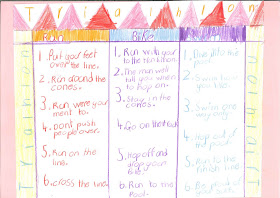 Triathlon
Run
1. Put your feet
over the line.
2. Run around the
cones.
3. Run were your
ment to.
4. don't push
people over.
5. Run on the
line.
6. cross the line.
Bike
1. Run with your
to the
2. The man will
tell you when
to hop on.
3. Stay in the
cones.
4. Go on the track
5. hop off and
drop your
bike
6. Run to the
Pool.
1. Dive into the
pool.
2. Swim
you like.
3. Swim one
way only
4. Hop out of the
pool.
5. Run to the
finish line.
6. Be proud of
Triathlon
Triathlon